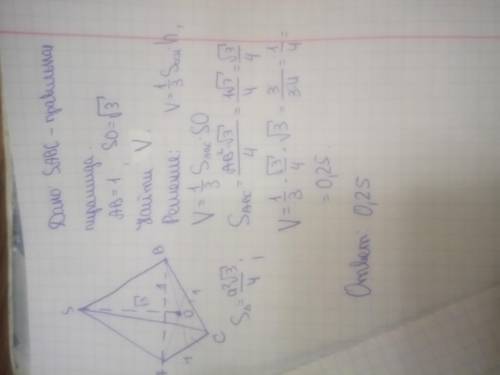 Дано SABC - правильная
пирамида.
AB = 1, SO = √3
Найти V.
Решение: V = 1/3 Sосн · h,
V = 1/3 SABC · SO
SABC = AB²√3/4 = 1√3/4 = √3/4
V = 1/3 · √3/4 · √3 = 3/3·4 = 1/4 =
= 0,25.
Ответ: 0,25
S
√3
A
B
1
O
1
1
C
S△ = a²√3/4,